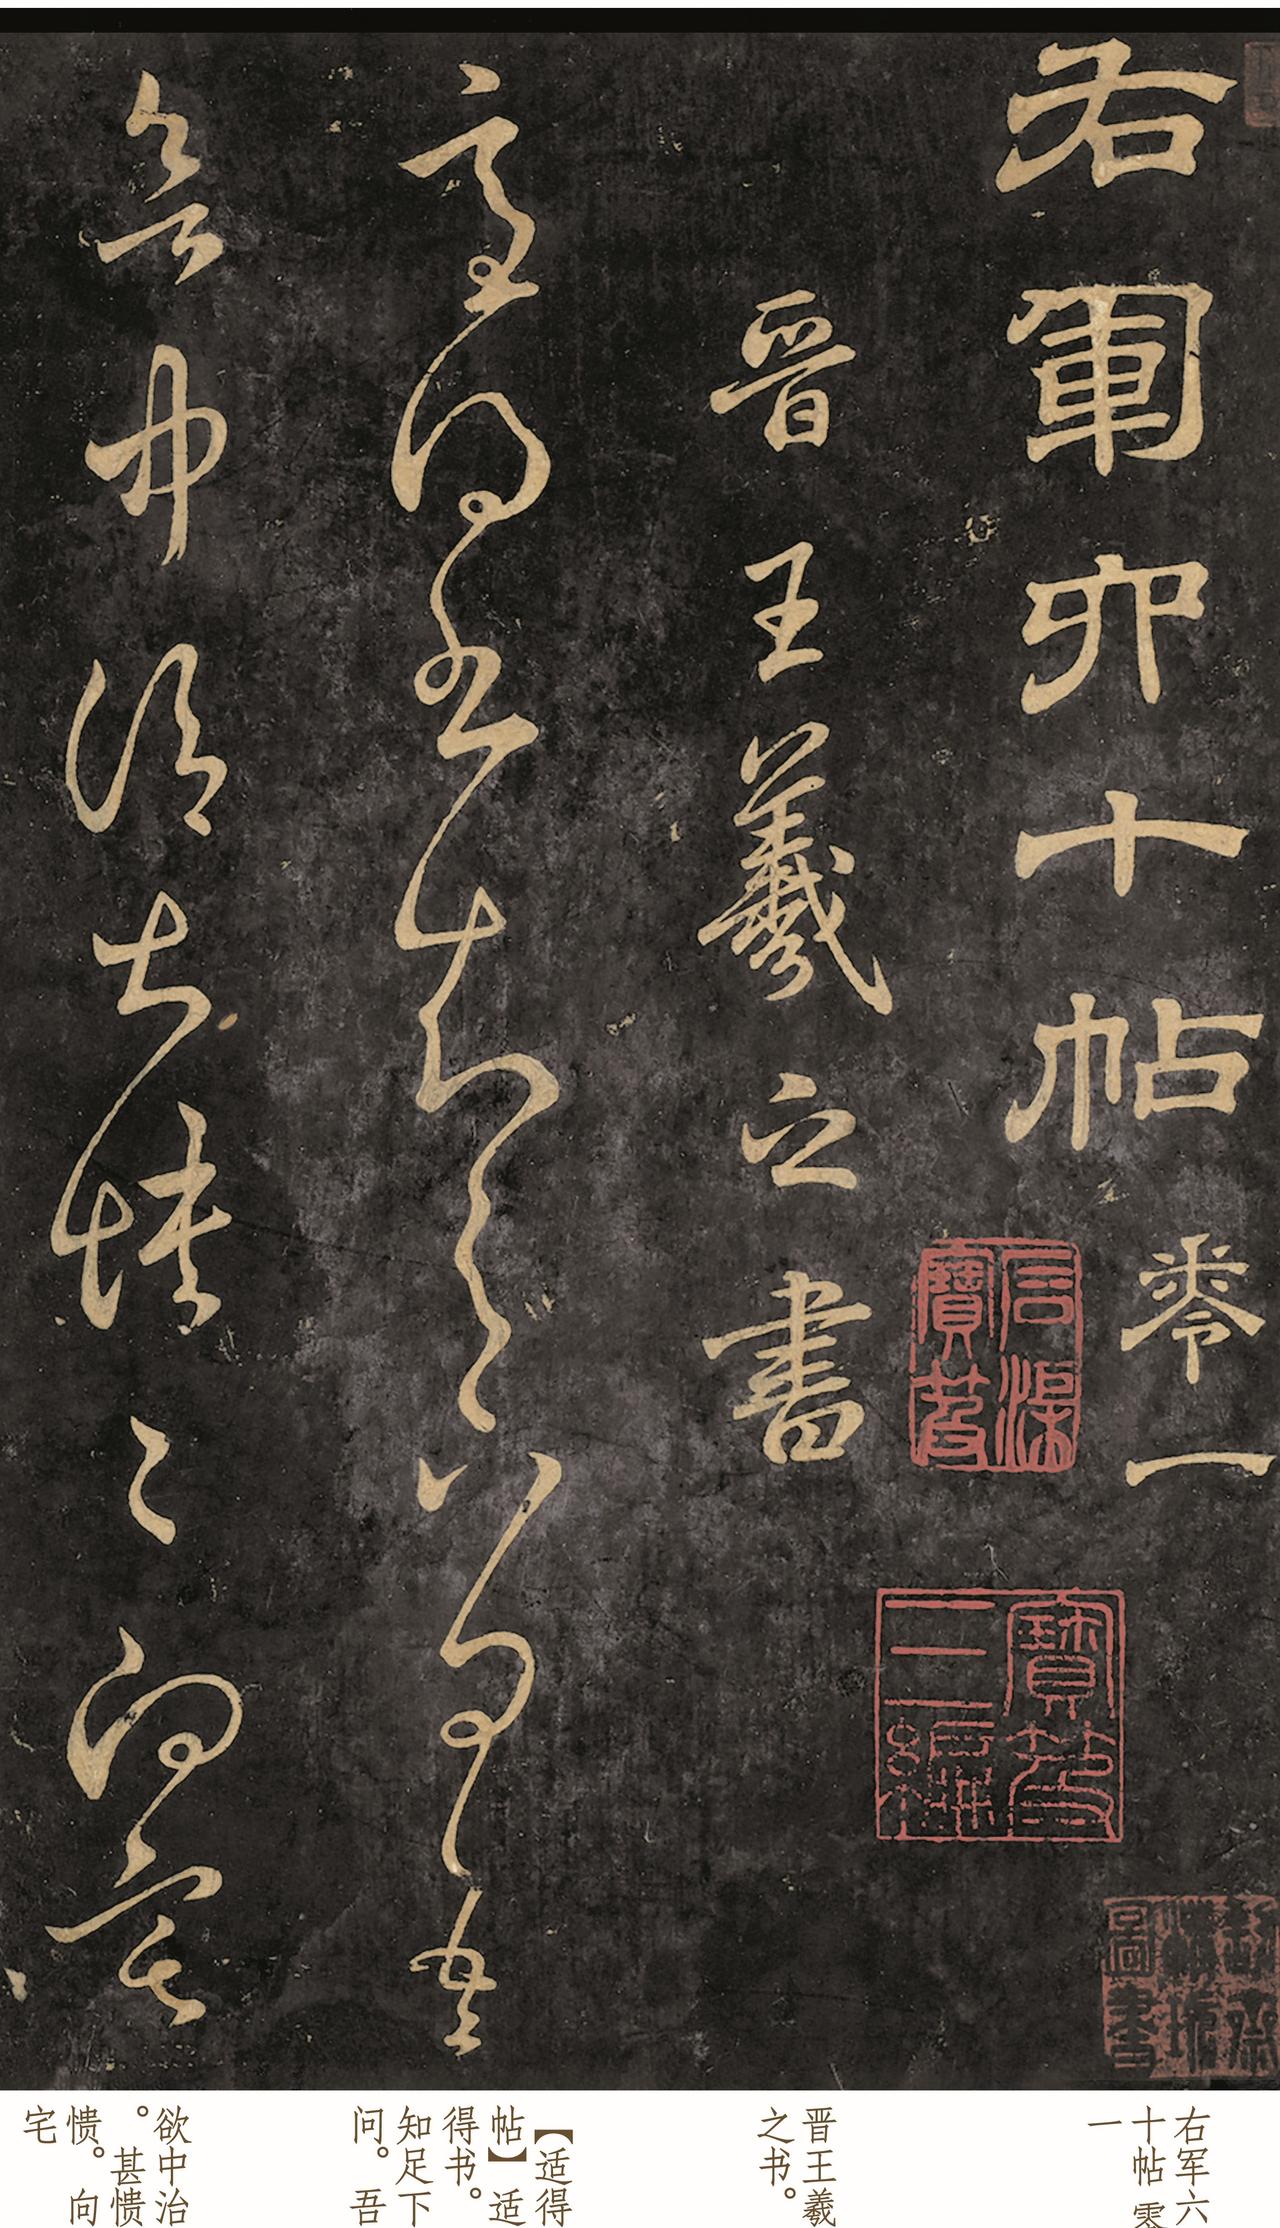 右軍六十帖零一
石渠寶笈
寶笈三編
晋王羲之書
適得書知足下問吾
欲中治甚憒憒向宅
右军六
十帖 零
一
晋王羲
之书。
【适得
帖】适
得书。
知足下
问。吾
欲中治
。甚愦
愦。向
宅